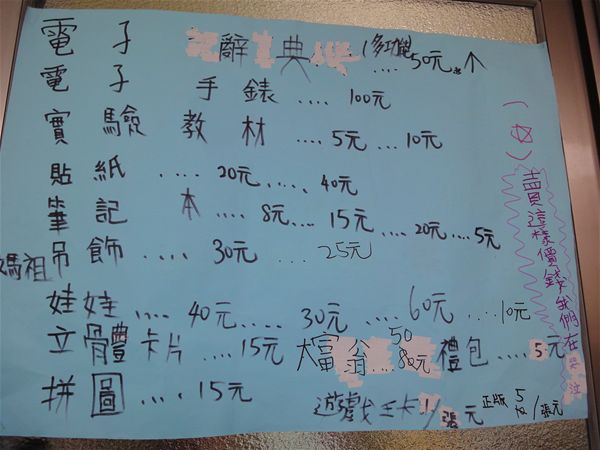 電子辭典(多功能)....50元↑
電子手錶....100元
實驗教材....5元....10元
貼紙....20元.....40元
筆記本....8元....15元....20元....5元
媽祖吊飾....30元....25元
娃娃....40元....30元....60元....10元
立體卡片....15元 大富翁...50 80元 禮包....5元
拼圖....15元
遊戲王卡 1/張元 正版 5元/張
賣這樣價錢我們在